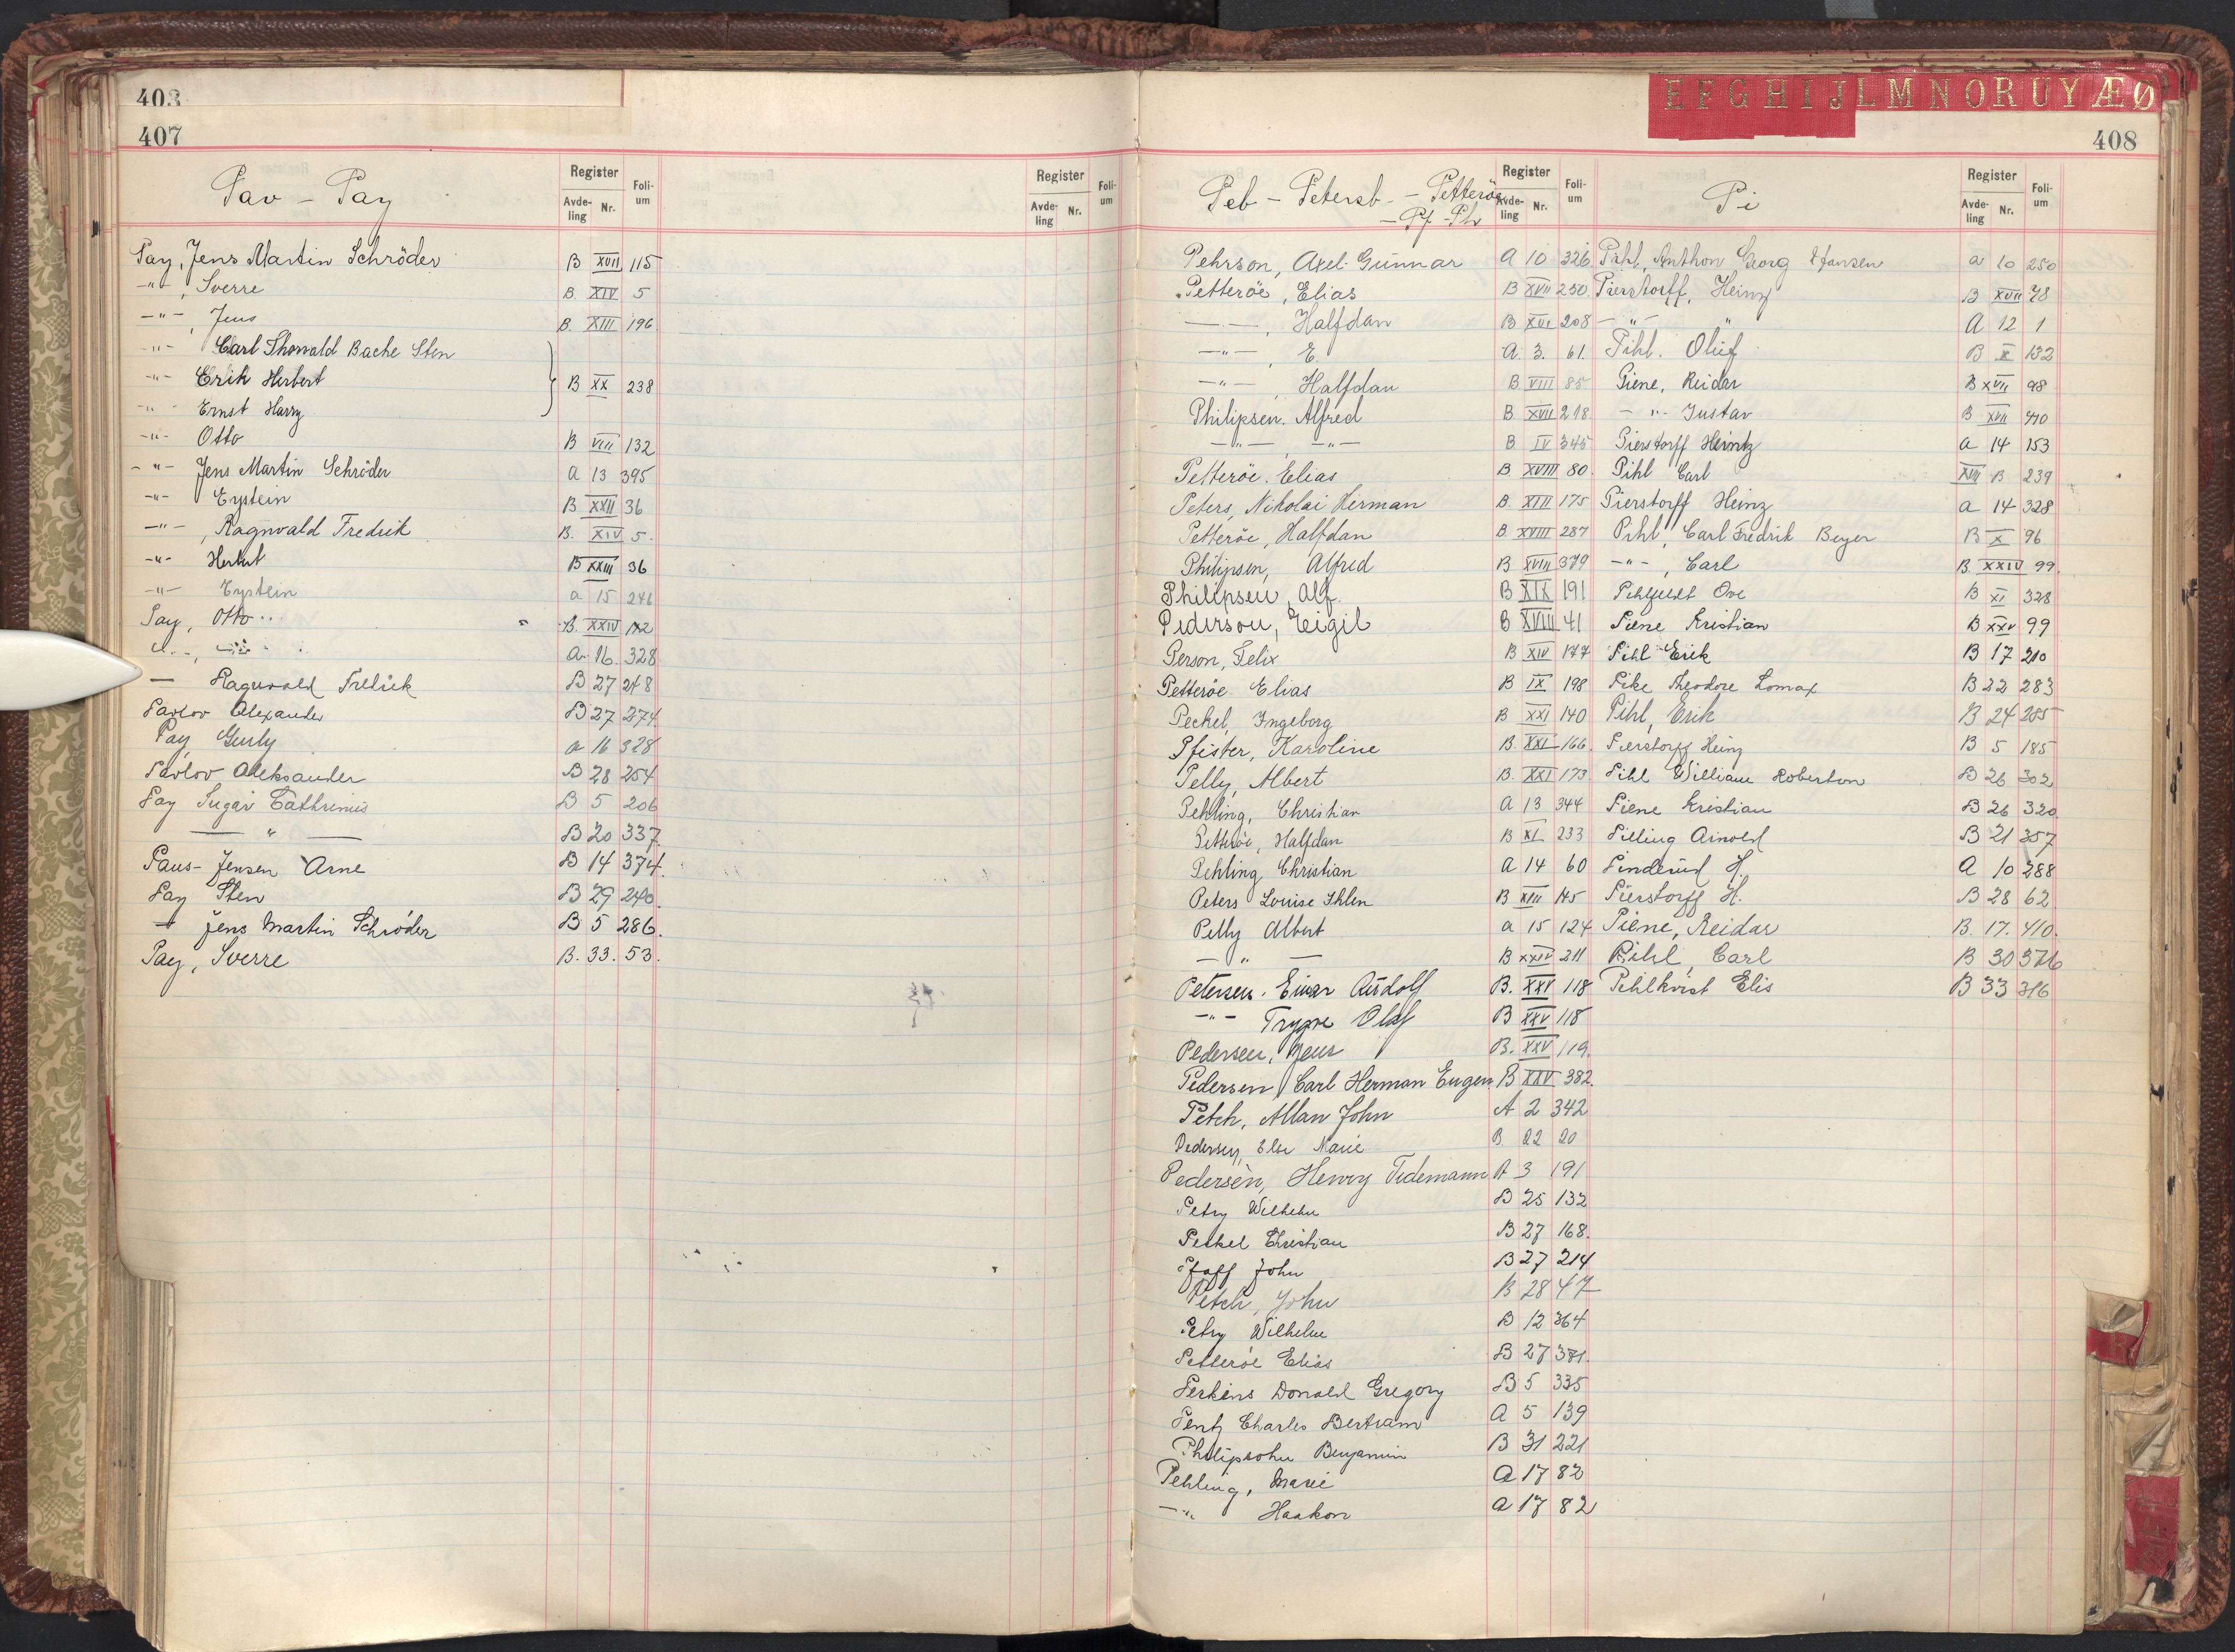 403
407
Pav - Pay
Register
Avde-ling Nr. Foli-um
Register
Avde-ling Nr. Foli-um
Pay, Jens Martin Schröder B XVII 115
-"-, Sverre B. XIV 5
-"-, Jens B. XIII 196
-"- Carl Thorvald Bache Sten
-"- Erik Herbert } B XX 238
-"- Ernst Harry
-"- Otto B VIII 132
-"- Jens Martin Schröder a 13 395
-"- Eystein B XXII 36
-"-, Ragnvald Fredrik B. XIV 5.
-"- Herbert B XXIII 36
-"- Eystein a 15 246
Pay, Otto B. XXIV 142
a. 16. 328
— Ragnvald Fredrik B 27 248
Pavlov Alexander B 27 274
Pay, Gurly a 16 328
Pavlov Aleksander B 28 254
Pay Sugar Cathrinus B 5 206
— " — B 20 337
Paus-Jensen Arne B 14 374.
Pay Sten B 29 240.
— Jens Martin Schröder B 5 286.
Pay, Sverre B. 33. 53.
E F G H I J L M N O R U Y Æ Ø
408
Peb - Petersb - Petterøe
- Pf - Ph
Register
Avde-ling Nr. Foli-um
Pehrson, Axel Gunnar A 10 326
Petterøe, Elias B XVII 250
— —, Halfdan B XVI 208
—"—, E. A. 3. 61.
—"—, Halfdan B VIII 85
Philipsen. Alfred B. XVII 218
—"— —"— B IV 345
Petterøe. Elias B XVIII 80
Peters, Nikolai Herman B. XIII 175
Petterøe, Halfdan B XVIII 287
Philipsen, Alfred B XVIII 379
Philipsen, Alf. B XIX 191
Pederson, Eigil B XVIII 41
Person, Felix B XIV 147
Petterøe Elias B IX 198
Peckel, Ingeborg B XXI 140
Pfister, Karoline B. XXI 166
Pelly, Albert B. XXI 173
Pehling, Christian A 13 344
Petterøe, Halfdan B XI 233
Pehling Christian a 14 60
Peters Louise Ihlen B XIII 145
Pelly Albert a 15 124
—"— B XXIV 211
Petersen. Einar Rudolf B. XXV 118
-"- Trygve Olaf B XXV 118
Pedersen, Jens B. XXV 119.
Pedersen, Carl Herman Eugen B XXV 382.
Petch, Allan John A 2 342
Pedersen, Else Marie B 22 20
Pedersen, Henry Tidemann A 3 191
Petry Wilhelm B 25 132
Peckel Christian B 27 168.
Pfaff John B 27 214
Petch, John B 28 47
Petry Wilhelm B 12 364
Petterøe Elias B 27 371.
Perkins Donald Gregory B 5 335
Pentz Charles Bertram A 5 139
Philipsohn Benjamin B 31 221
Pehling, Marie a 17 82
—"— Haakon a 17 82
Pi
Register
Avde-ling Nr. Foli-um
Pihl, Anthon Georg Hansen a 10 250
Pierstorff, Heinz B XVII 78
—"— " A 12 1
Pihl. Oluf B X 132
Piene, Reidar B XVII 98
-"- Gustav B XVII 410
Pierstorff Heintz a 14 153
Pihl Carl XVII B 239
Pierstorff Heinz a 14 328
Pihl, Carl Fredrik Beyer B X 96
-"-, Carl B. XXIV 99.
Pihlfeldt Ove B XI 328
Piene Kristian B XXV 99
Pihl Erik B 17 210
Pike Theodore Lomax B 22 283
Pihl, Erik B 24 255
Pierstorff Heinz B 5 185
Pihl William Roberton B 26 302
Piene Kristian B 26 320
Pilling Arnold B 21 357
Pinderud H. A 10 288
Pierstorff H. B 28 62
Piene, Reidar B. 17. 410.
Pihl, Carl B 30 376
Pihlkvist Elis B 33 316